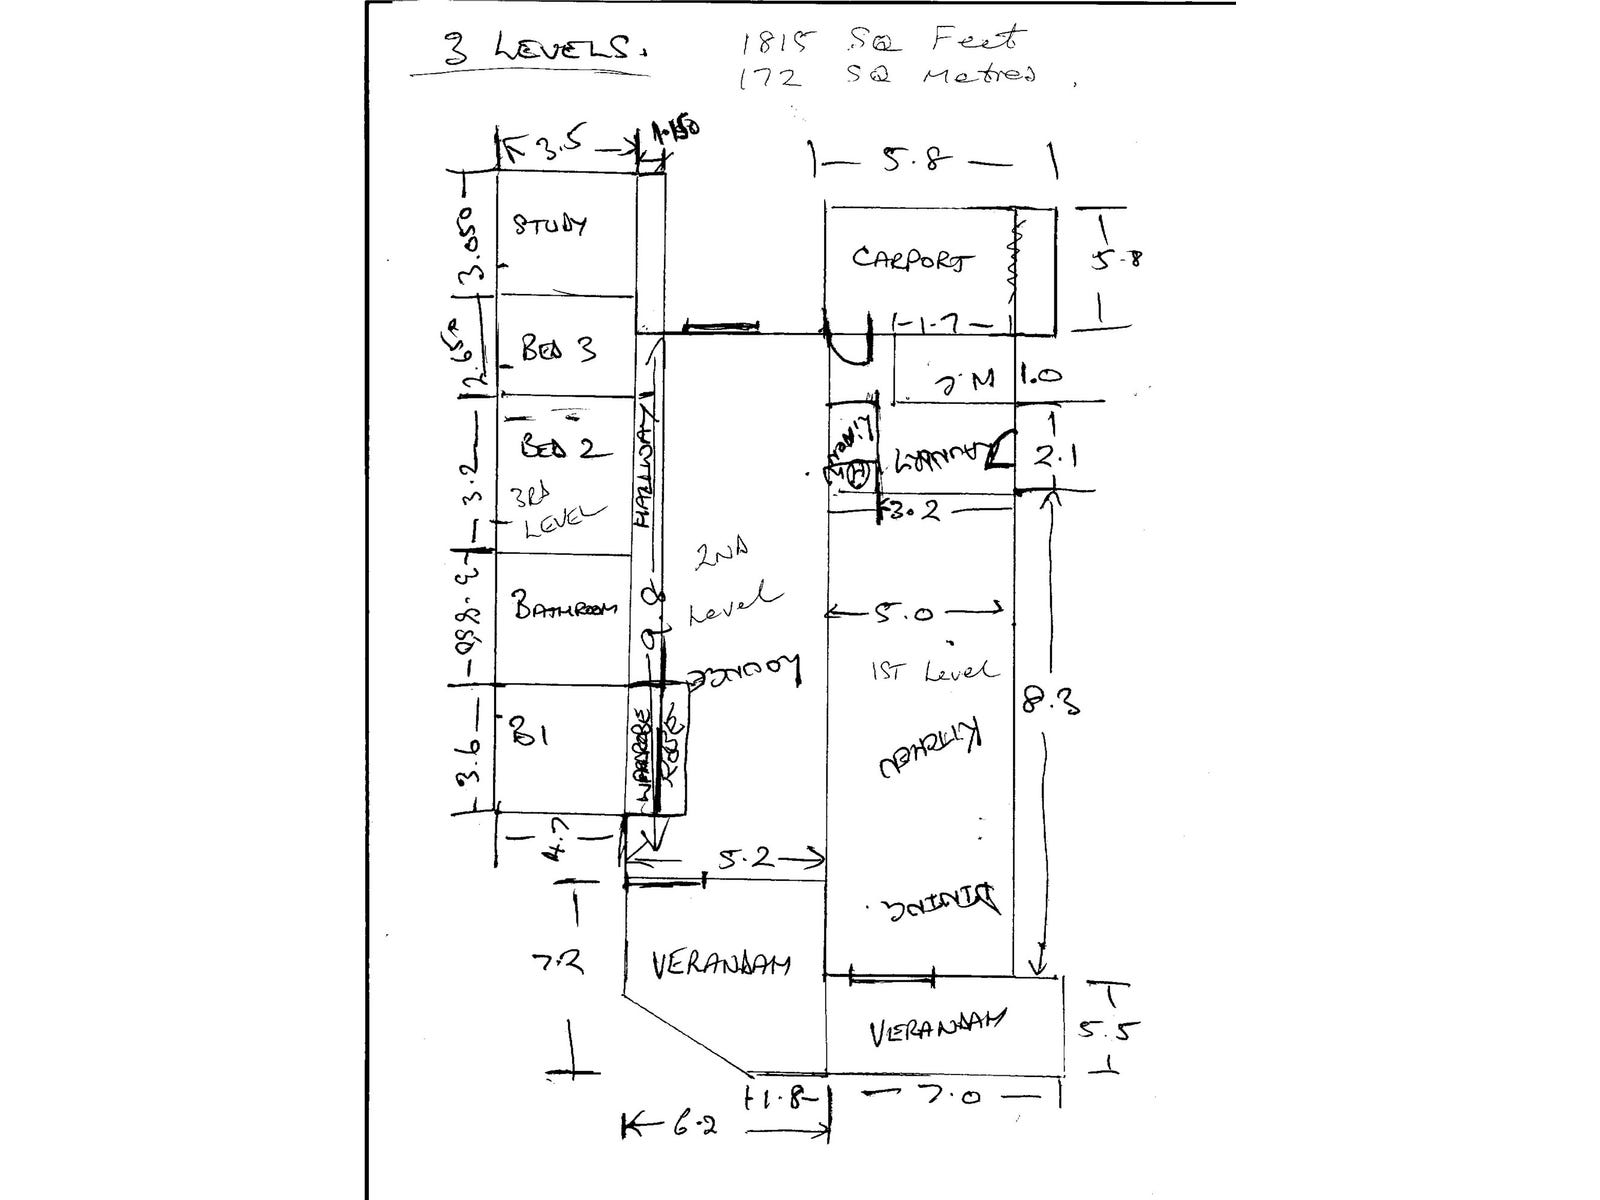 3 LEVELS.
1815 SQ Feet
172 SQ Metres.
3.5
1.150
5.8
STUDY
3.050
CARPORT
5.8
1.7
BED 3
2.650
1.0
HALLWAY
BED 2
3.2
LAUNDRY
2.1
3RD
LEVEL
3.2
2ND
Level
BATHROOM
9.8
5.0
1ST Level
LOUNGE
8.3
B1
3.6
WARDROBE
ROBE
KITCHEN
4.7
5.2
DINING
7.2
VERANDAH
VERANDAH
5.5
1.8
7.0
6.2